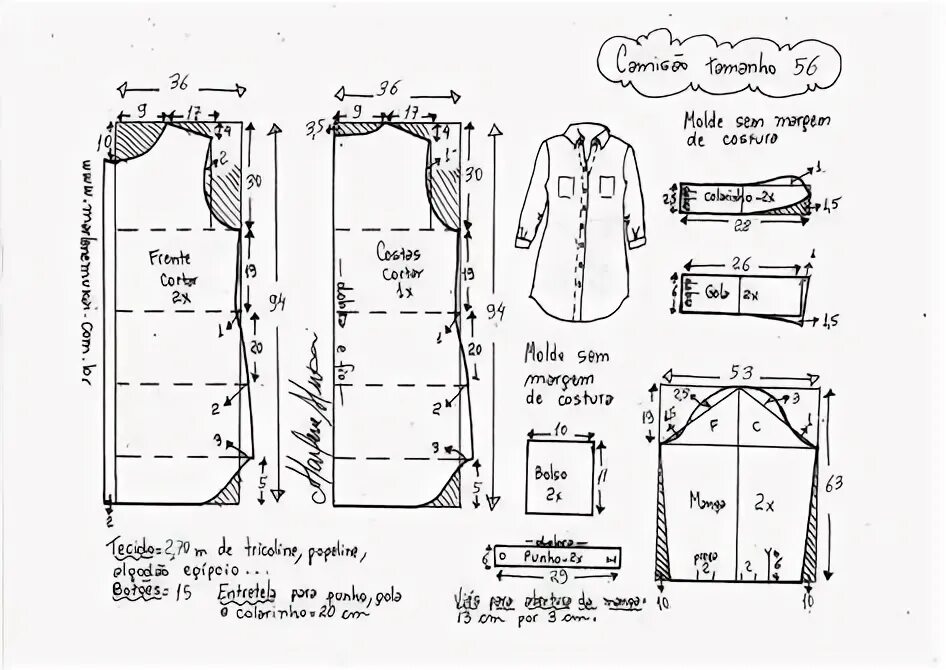 Camisão tamanho 56
Molde sem margem
de costura
36
9
17
10
4
2
30
Frente
cortar
2x
19
94
1
20
2
3
5
2
www.marlenemukai.com.br
36
9
17
3,5
4
1
30
Costas
cortar
1x
dobra e fio
19
94
1
20
2
3
5
Marlene Mukai
1
colarinho-2x
2,5
1,5
28
26
1
6
Gola 2x
1,5
Molde sem
margem
de costura
10
Bolso
2x
11
dobra
6
Punho-2x
29
Viés para abertura da manga-
13 cm por 3 cm.
53
19
1,5
2,5
3
1
F
C
63
Manga 2x
prega
2
2
6
10
10
Tecido=2,70 m de tricoline, popeline,
algodão egípcio...
Botões=15 Entretela para punho, gola
e colarinho=20 cm